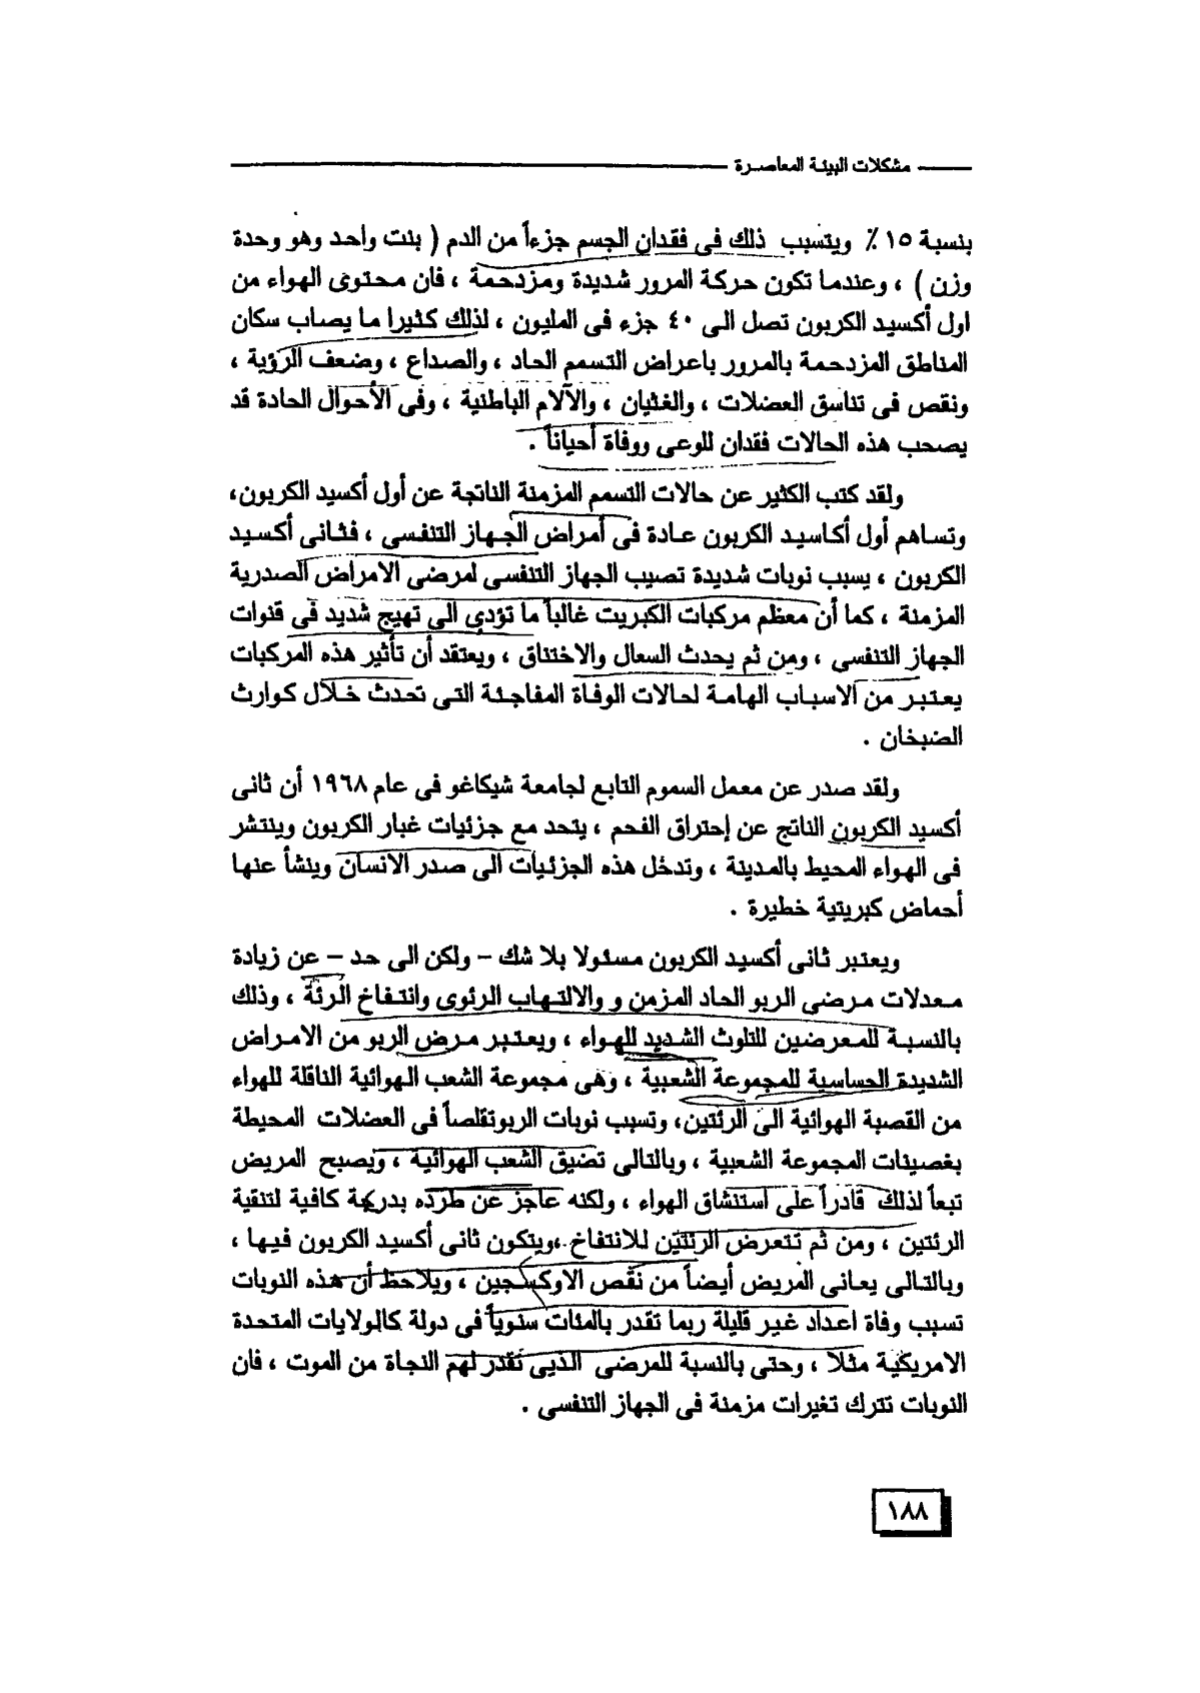 مشكلات البيئة المعاصرة
بنسبة ١٥ ٪ ويتسبب ذلك فى فقدان الجسم جزءاً من الدم ( بنت واحد وهو وحدة
وزن ) ، وعندما تكون حركة المرور شديدة ومزدحمة ، فان محتوى الهواء من
اول أكسيد الكربون تصل الى ٤٠ جزء فى المليون ، لذلك كثيرا ما يصاب سكان
المناطق المزدحمة بالمرور باعراض التسمم الحاد ، والصداع ، وضعف الرؤية ،
ونقص فى تناسق العضلات ، والغثيان ، والآلام الباطنية ، وفى الأحوال الحادة قد
يصحب هذه الحالات فقدان للوعى ووفاة أحياناً .
ولقد كتب الكثير عن حالات التسمم المزمنة الناتجة عن أول أكسيد الكربون،
وتساهم أول أكاسيد الكربون عادة فى أمراض الجهاز التنفسى ، فثانى أكسيد
الكربون ، يسبب نوبات شديدة تصيب الجهاز التنفسى لمرضى الامراض الصدرية
المزمنة ، كما أن معظم مركبات الكبريت غالباً ما تؤدي الى تهيج شديد فى قنوات
الجهاز التنفسي ، ومن ثم يحدث السعال والاختناق ، ويعتقد أن تأثير هذه المركبات
يعتبر من الاسباب الهامة لحالات الوفاة المفاجئة التى تحدث خلال كوارث
الضبخان .
ولقد صدر عن معمل السموم التابع لجامعة شيكاغو فى عام ١٩٦٨ أن ثانى
أكسيد الكربون الناتج عن إحتراق الفحم ، يتحد مع جزئيات غبار الكربون وينتشر
فى الهواء المحيط بالمدينة ، وتدخل هذه الجزئيات الى صدر الانسان وينشأ عنها
أحماض كبريتية خطيرة .
ويعتبر ثانى أكسيد الكربون مسئولا بلا شك – ولكن الى حد – عن زيادة
معدلات مرضى الربو الحاد المزمن و والالتهاب الرئوى وانتفاخ الرئة ، وذلك
بالنسبة للمعرضين للتلوث الشديد للهواء ، ويعتبر مرض الربو من الامراض
الشديدة الحساسية للمجموعة الشعبية ، وهى مجموعة الشعب الهوائية الناقلة للهواء
من القصبة الهوائية الى الرئتين، وتسبب نوبات الربوتقلصاً فى العضلات المحيطة
بغصينات المجموعة الشعبية ، وبالتالى تضيق الشعب الهوائية ، ويصبح المريض
تبعاً لذلك قادراً على استنشاق الهواء ، ولكنه عاجز عن طرده بدرجة كافية لتنقية
الرئتين ، ومن ثم تتعرض الرئتين للانتفاخ ،ويتكون ثانى أكسيد الكربون فيها ،
وبالتالى يعانى المريض أيضاً من نقص الاوكسجين ، ويلاحظ أن هذه النوبات
تسبب وفاة اعداد غير قليلة ربما تقدر بالمئات سنوياً فى دولة كالولايات المتحدة
الامريكية مثلا ، وحتى بالنسبة للمرضى الذين تقدر لهم النجاة من الموت ، فان
النوبات تترك تغيرات مزمنة فى الجهاز التنفسى .
١٨٨